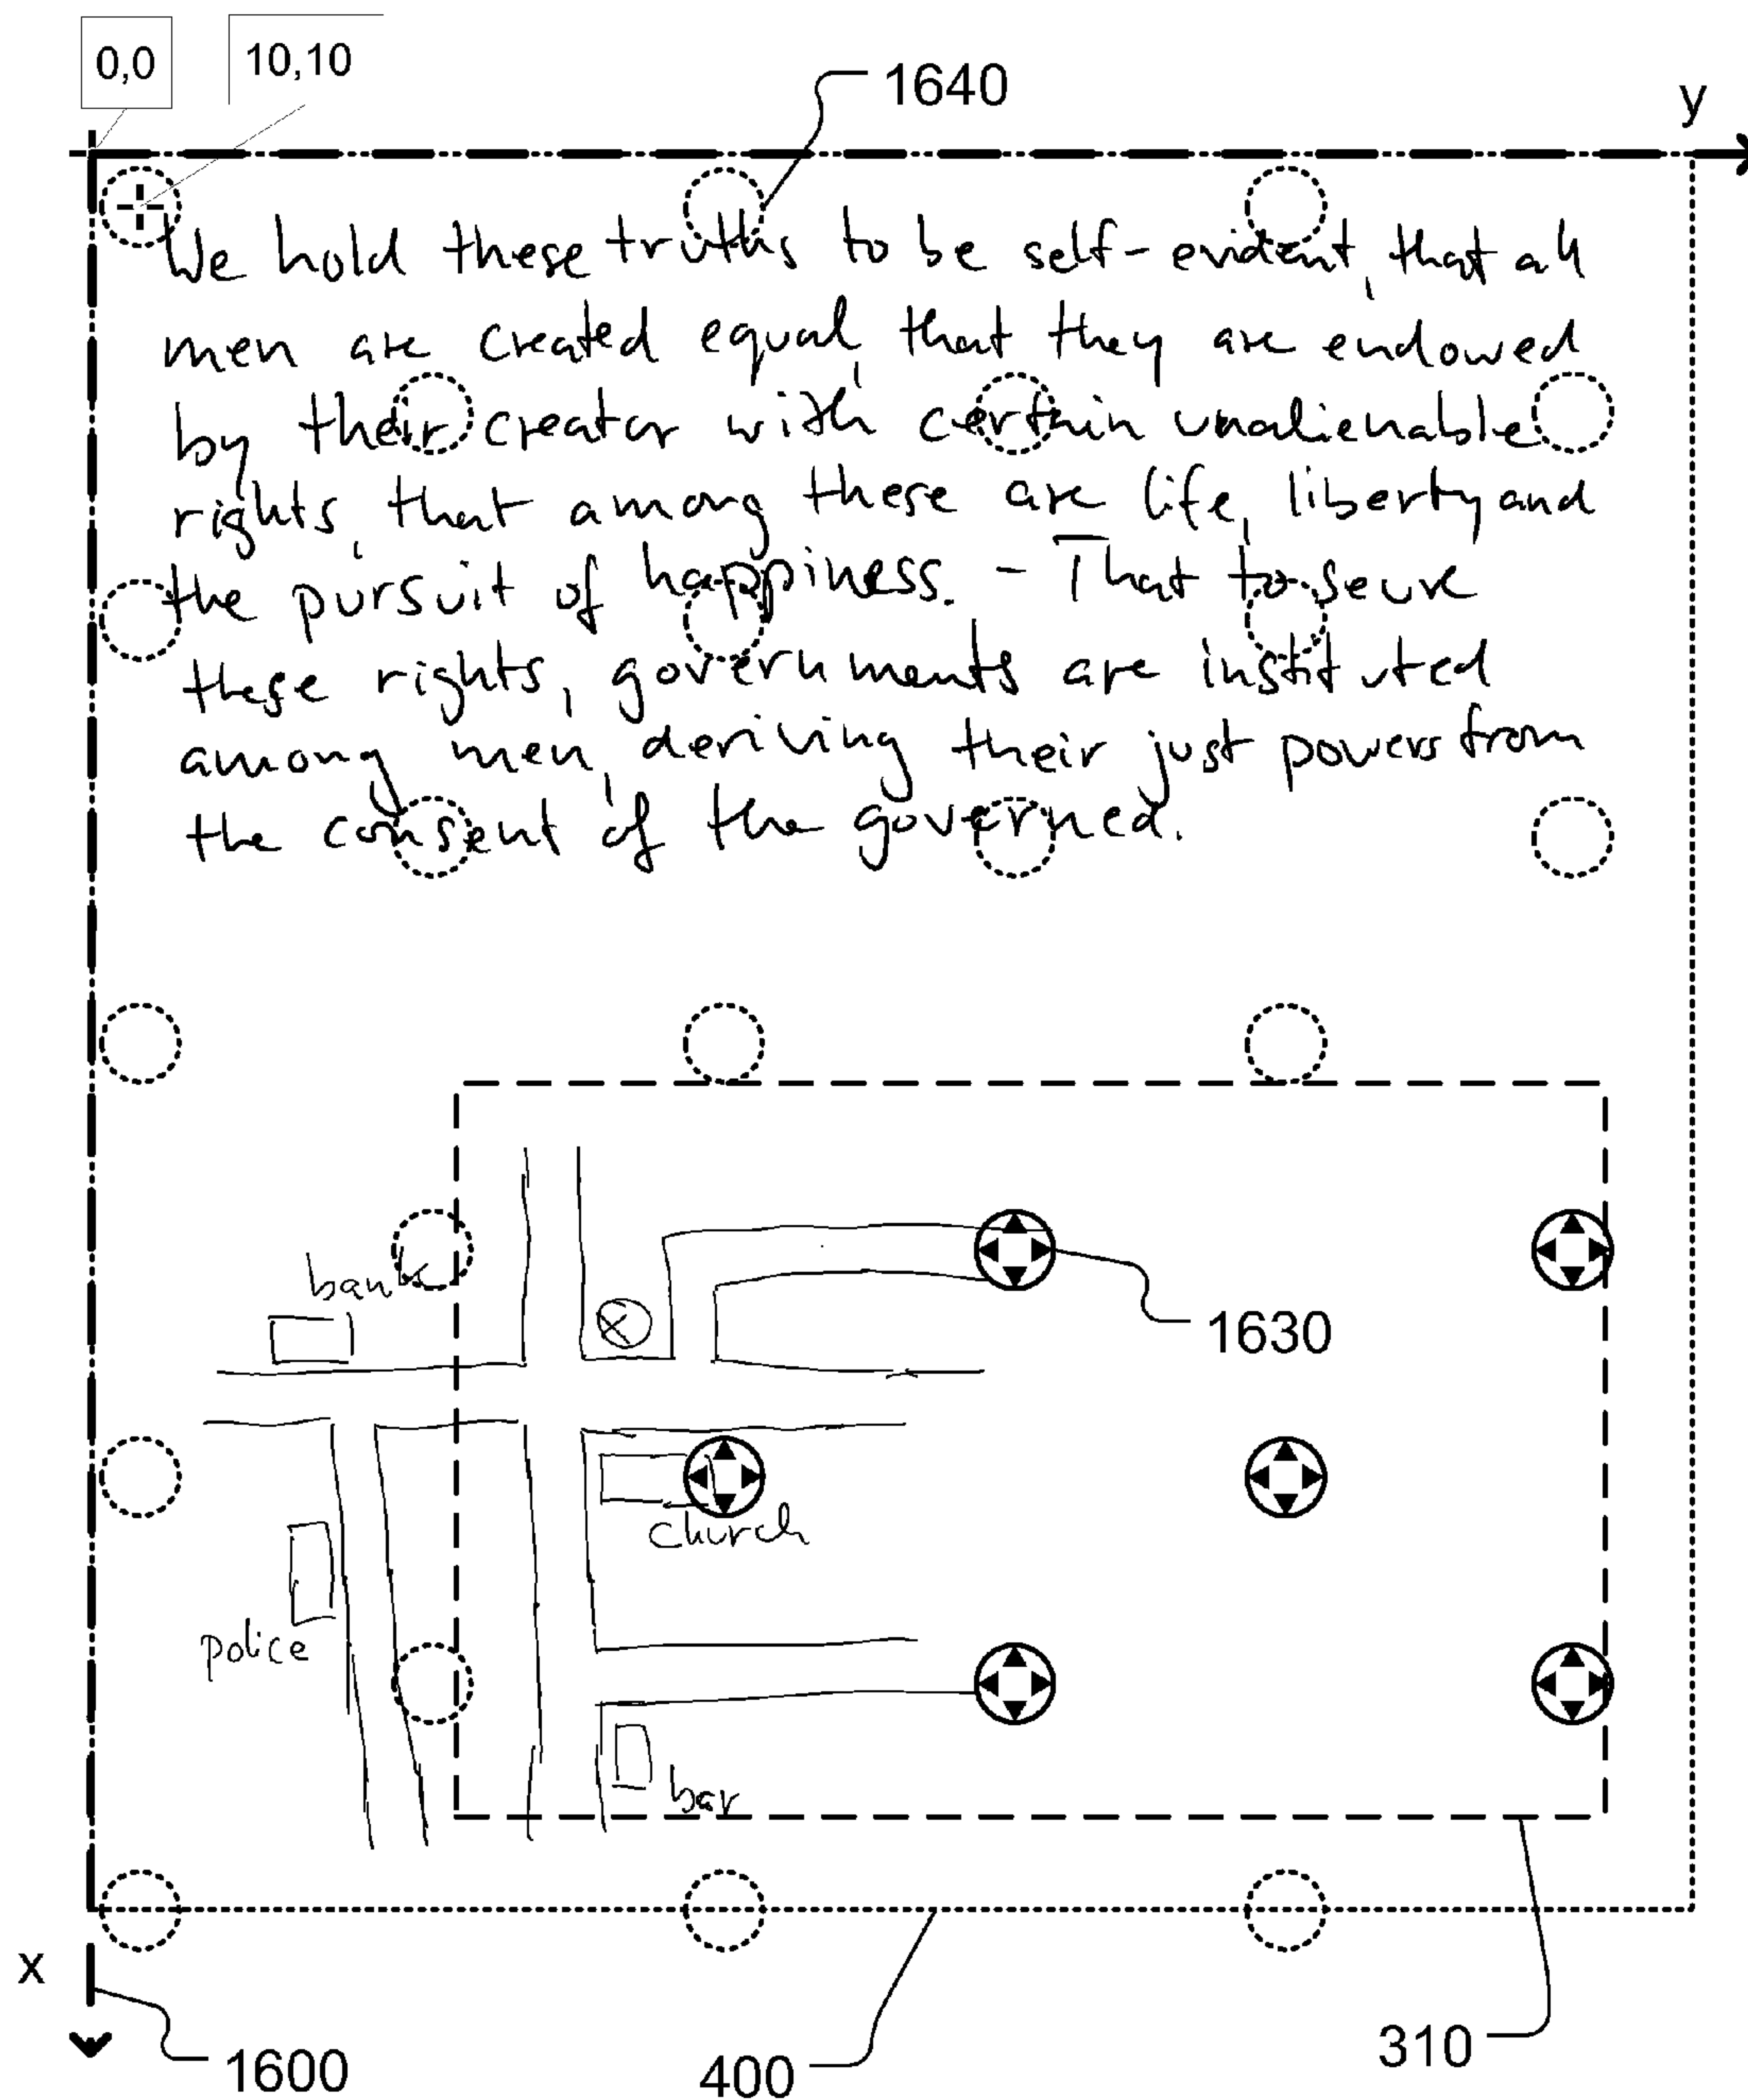 0,0
10,10
1640
y
We hold these truths to be self-evident, that all
men are created equal, that they are endowed
by their creator with certain unalienable
rights, that among these are life, liberty and
the pursuit of happiness. - That to secure
these rights, governments are instituted
among men, deriving their just powers from
the consent of the governed.
bank
1630
church
police
bar
x
1600
400
310